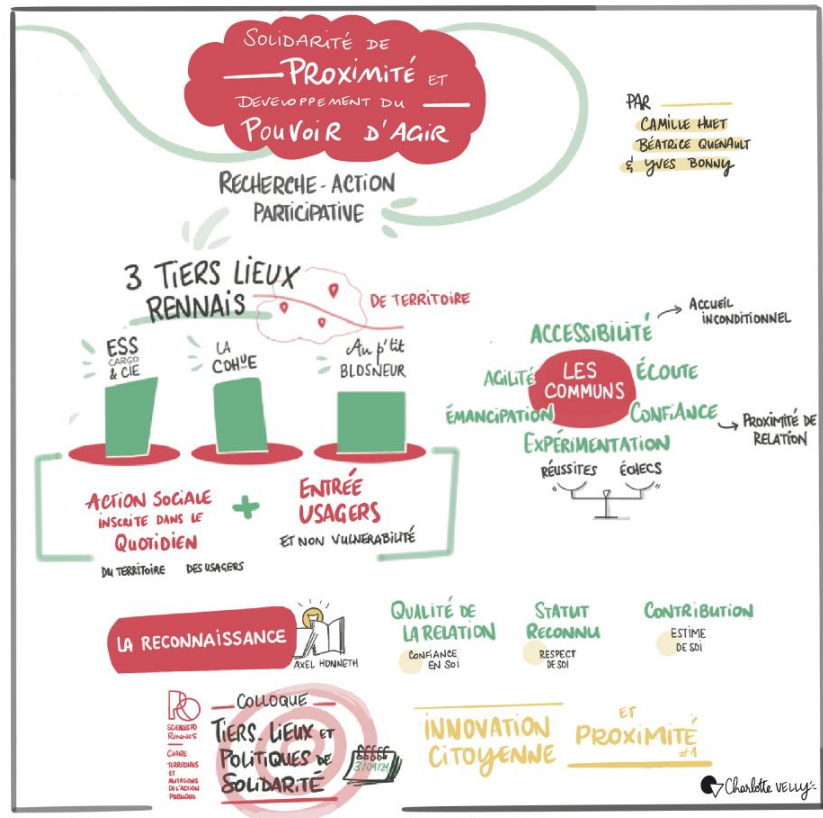 SOLIDARITÉ DE
PROXIMITÉ ET
DEVELOPPEMENT DU
POUVOIR D'AGIR
RECHERCHE-ACTION
PARTICIPATIVE
PAR
CAMILLE HUET
BÉATRICE QUENAULT
& YVES BONNY
3 TIERS LIEUX
RENNAIS
DE TERRITOIRE
ESS
CARGO
& CIE
LA
COHUE
Au p'tit
BLOSNEUR
ACTION SOCIALE
INSCRITE DANS LE
QUOTIDIEN
DU TERRITOIRE DES USAGERS
+
ENTRÉE
USAGERS
ET NON VULNERABILITÉ
ACCESSIBILITÉ
ACCUEIL
INCONDITIONNEL
AGILITÉ
LES
COMMUNS
ÉCOUTE
ÉMANCIPATION
CONFIANCE
PROXIMITÉ DE
RELATION
EXPÉRIMENTATION
RÉUSSITES ÉCHECS
LA RECONNAISSANCE
AXEL HONNETH
QUALITÉ DE
LA RELATION
CONFIANCE
EN SOI
STATUT
RECONNU
RESPECT
DE SOI
CONTRIBUTION
ESTIME
DE SOI
SCIENCES PO
RENNES
CHAIRE
TERRITOIRES
ET
MUTATIONS
DE L'ACTION
PUBLIQUE
COLLOQUE
TIERS-LIEUX ET
POLITIQUES DE
SOLIDARITÉ
INNOVATION
CITOYENNE
ET
PROXIMITÉ
#1
Charlotte VELLY